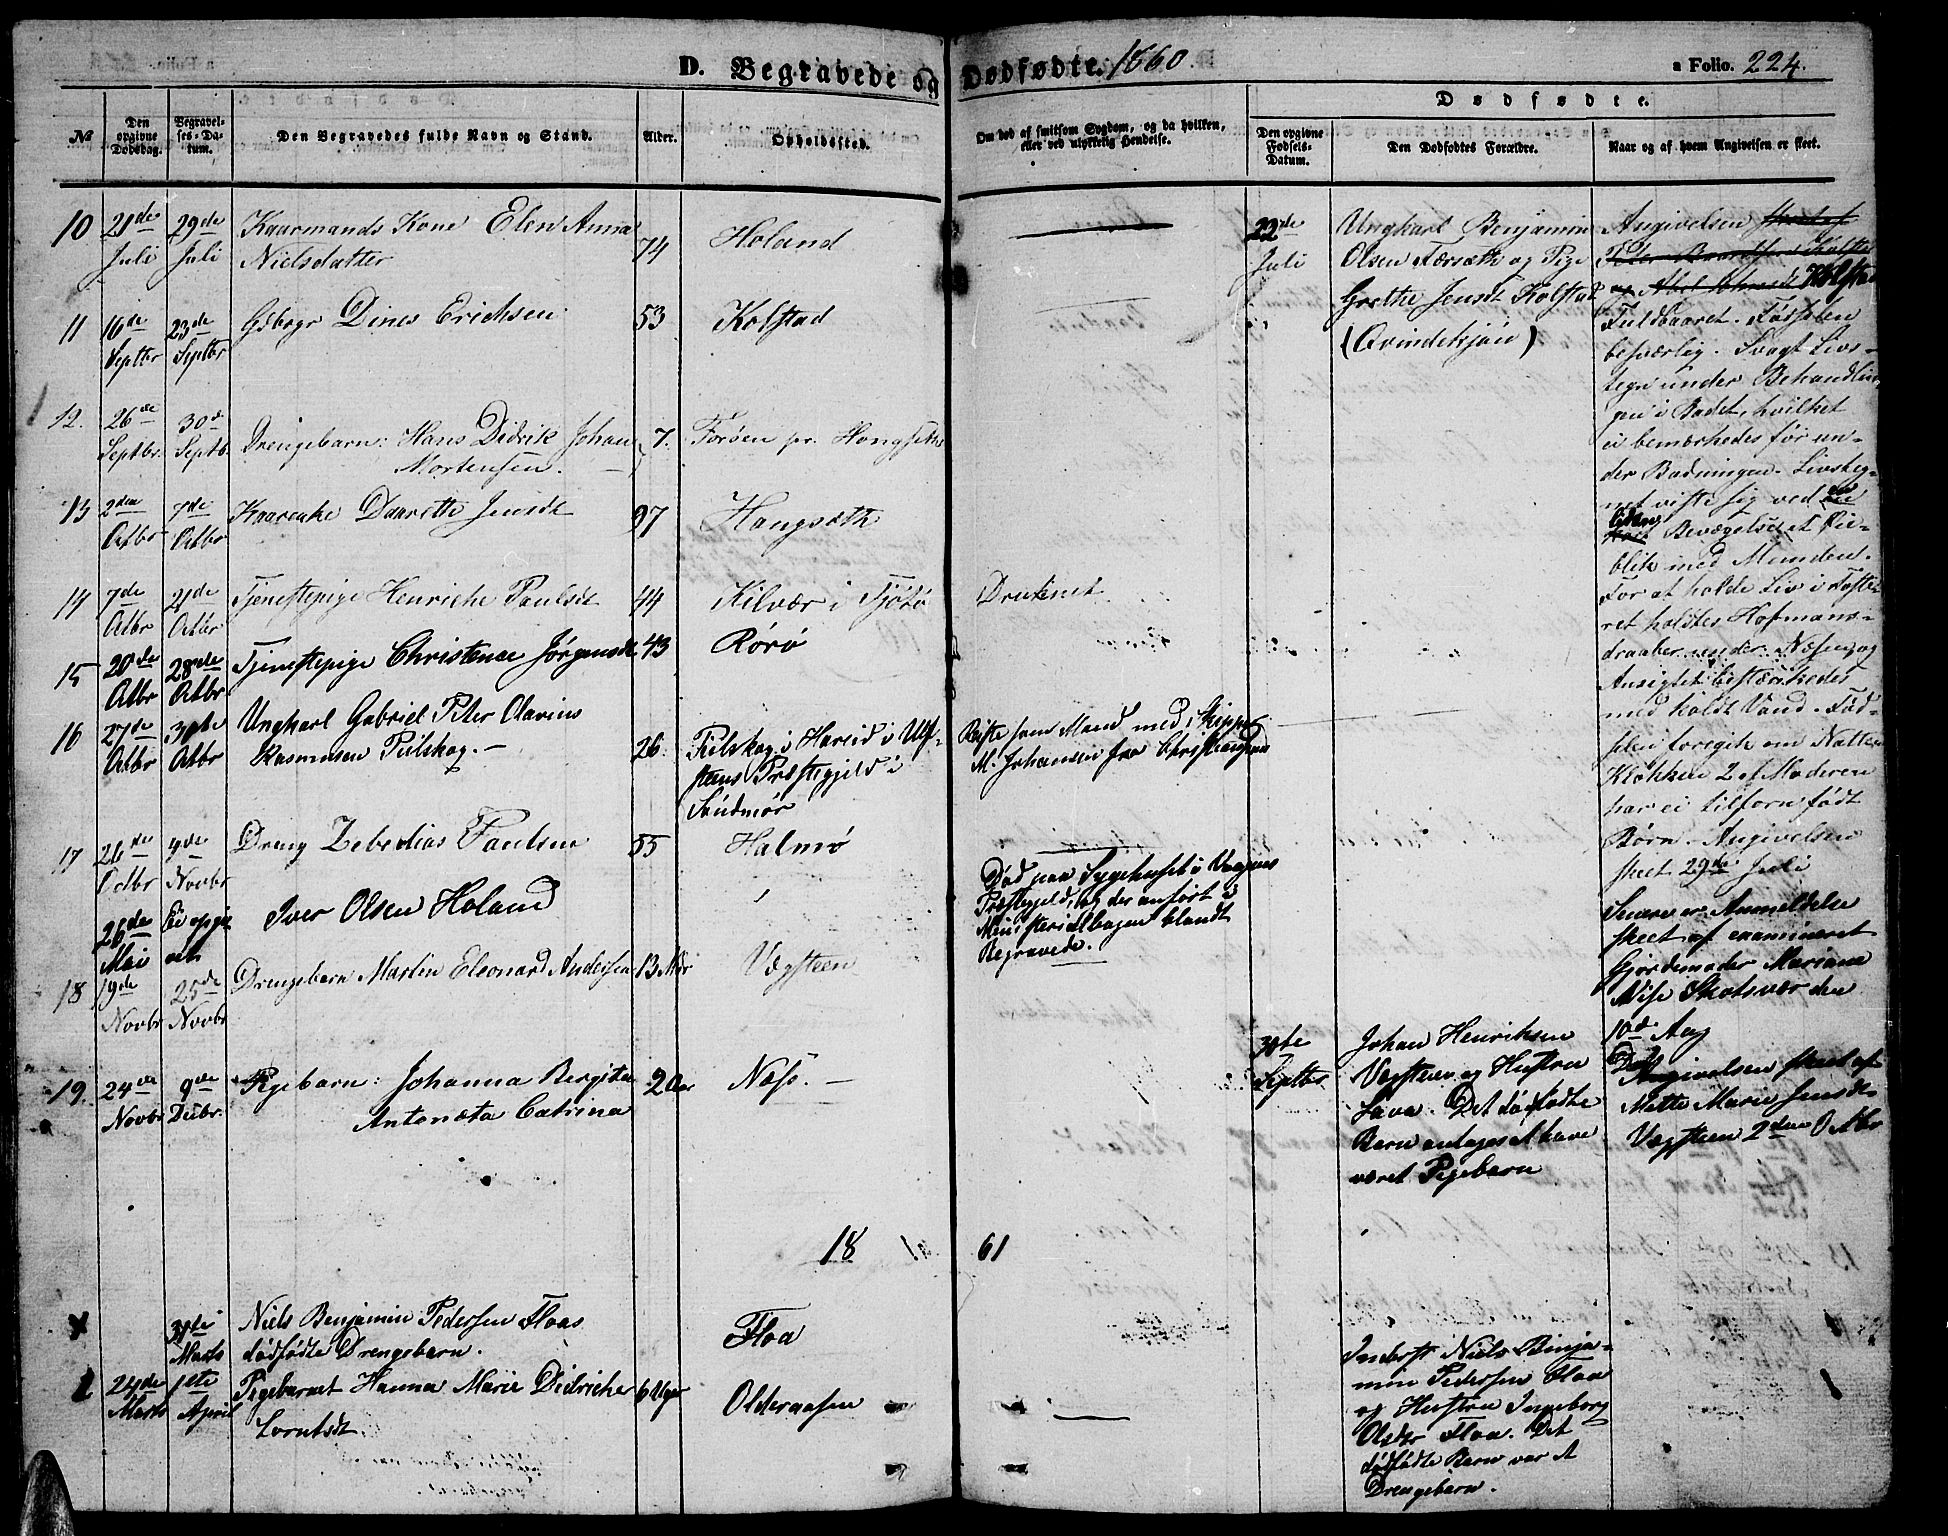 D. Begravede og Dødfødte. 1860.
a Folio. 224.
No
Den opgivne Dødsdag.
Begravelses-Datum.
Den Begravedes fulde Navn og Stand.
Alder.
Opholdssted.
Om død af smitsom Sygdom, og da hvilken,
eller ved ulykkelig Hendelse.
Dødfødte.
Den opgivne Fødsels-Datum.
Den Dødfødtes Forældre.
Naar og af hvem Angivelsen er skeet.
10 21de Juli 29de Juli Kaarmands Kone Elen Anna
Nielsdatter 74 Holand
11 16de Septbr 23de Septbr Dines Erichsen 53 Kolstad
12. 26de Septbr. 30d Septb. Drengebarn: Hans Didrik Johan
Mortensen. 7. Forøen pr.
13 2den Octbr 7de Octbr Daarette Jensdt 97 Hongsæth
14 7de Octbr 21de Octbr Tjenestepige Henriche Paulsdt 44 Kilvær i Tjøtø Druknet
15 20de Octbr 28de Octbr Tjenestepige Christence Jørgensdt 43 Rørø
16 27de Octbr Octbr Ungkarl Gabriel Peter Olavius
Rasmusen Pilskog. 26. Pilskog i Hareid i Ulf-
stens Præstegjeld i
Søndmør
Reiste som Mand med Skipper
M. Johansen fra Christiansund
17 26de Octbr 4de Novbr Dreng Zebedias Paulsen 55 Halmø
26de Mai Ei opgivet Iver Olsen Holand
Død paa Sygehuset i Vaagens
Præstegjeld, og der anført i
Ministerialbogen blandt
Begravede.
18 19de Novbr 25de Novbr Drengebarn Martin Eleonard Andersen 13 Mdr Vægsteen
19. 24de Novbr 9de Decbr. Pigebarn: Johanna Bergita
Antonæta Catrina 2 Aar Næss.
22de Juli
Ungkarl Benjamin
Olsen Færsæth og Pige
Grethe Jensdt Kolstad
(Qvindekjøn)
Angivelsen
Kolstad
Fuldbaaret. Fødselen
besværlig. Svagt Livs-
tegn under Behandlin-
gen i Badet, hvilket
ei bemærkedes før un-
der Badningen. Livsteg-
net viste sig ved en
liden Bevægelse et Øie-
blik med Munden.
For at holde Liv i Foste-
ret holdtes Hofmans-
draaber under Næsen, og
Ansigtet bestænkedes
med koldt Vand. Fød-
selen foregik om Natten
Klokken 2. Moderen
har ei tilforn født
Børn. Angivelsen
skeet 29de Juli
Senere er Anmeldelse
skeet af examineret
Gjordemoder Mariane
Wise Skotsvær den
10de Aug
30te Septbr.
Johan Henriksen
Vægsteen og Hustru
Lava. Det dødfødte
Barn antages at have
været Pigebarn
Angivelsen skeet af
Mette Marie Jensdt
Vægsteen 2den Octbr
18 61
31te Marts
Niels Benjamin Pedersen Floas
dødfødte Drengebarn.
Floa
Inderst Niels Binja-
min Pedersen Floa
og Hustru Ingeborg
Olsdtr Floa. Det
dødfødte Barn var et
Drengebarn.
1 24de Marts 1ste April Pigebarnet Hanna Marie Didriche
Lorntsdt. 6 Uger Olderaasen